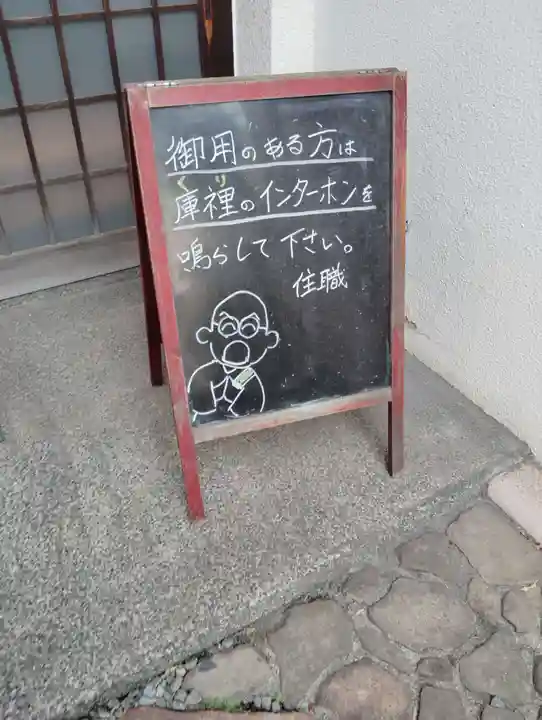 御用のある方は
くり
庫裡のインターホンを
鳴らして下さい。
住職